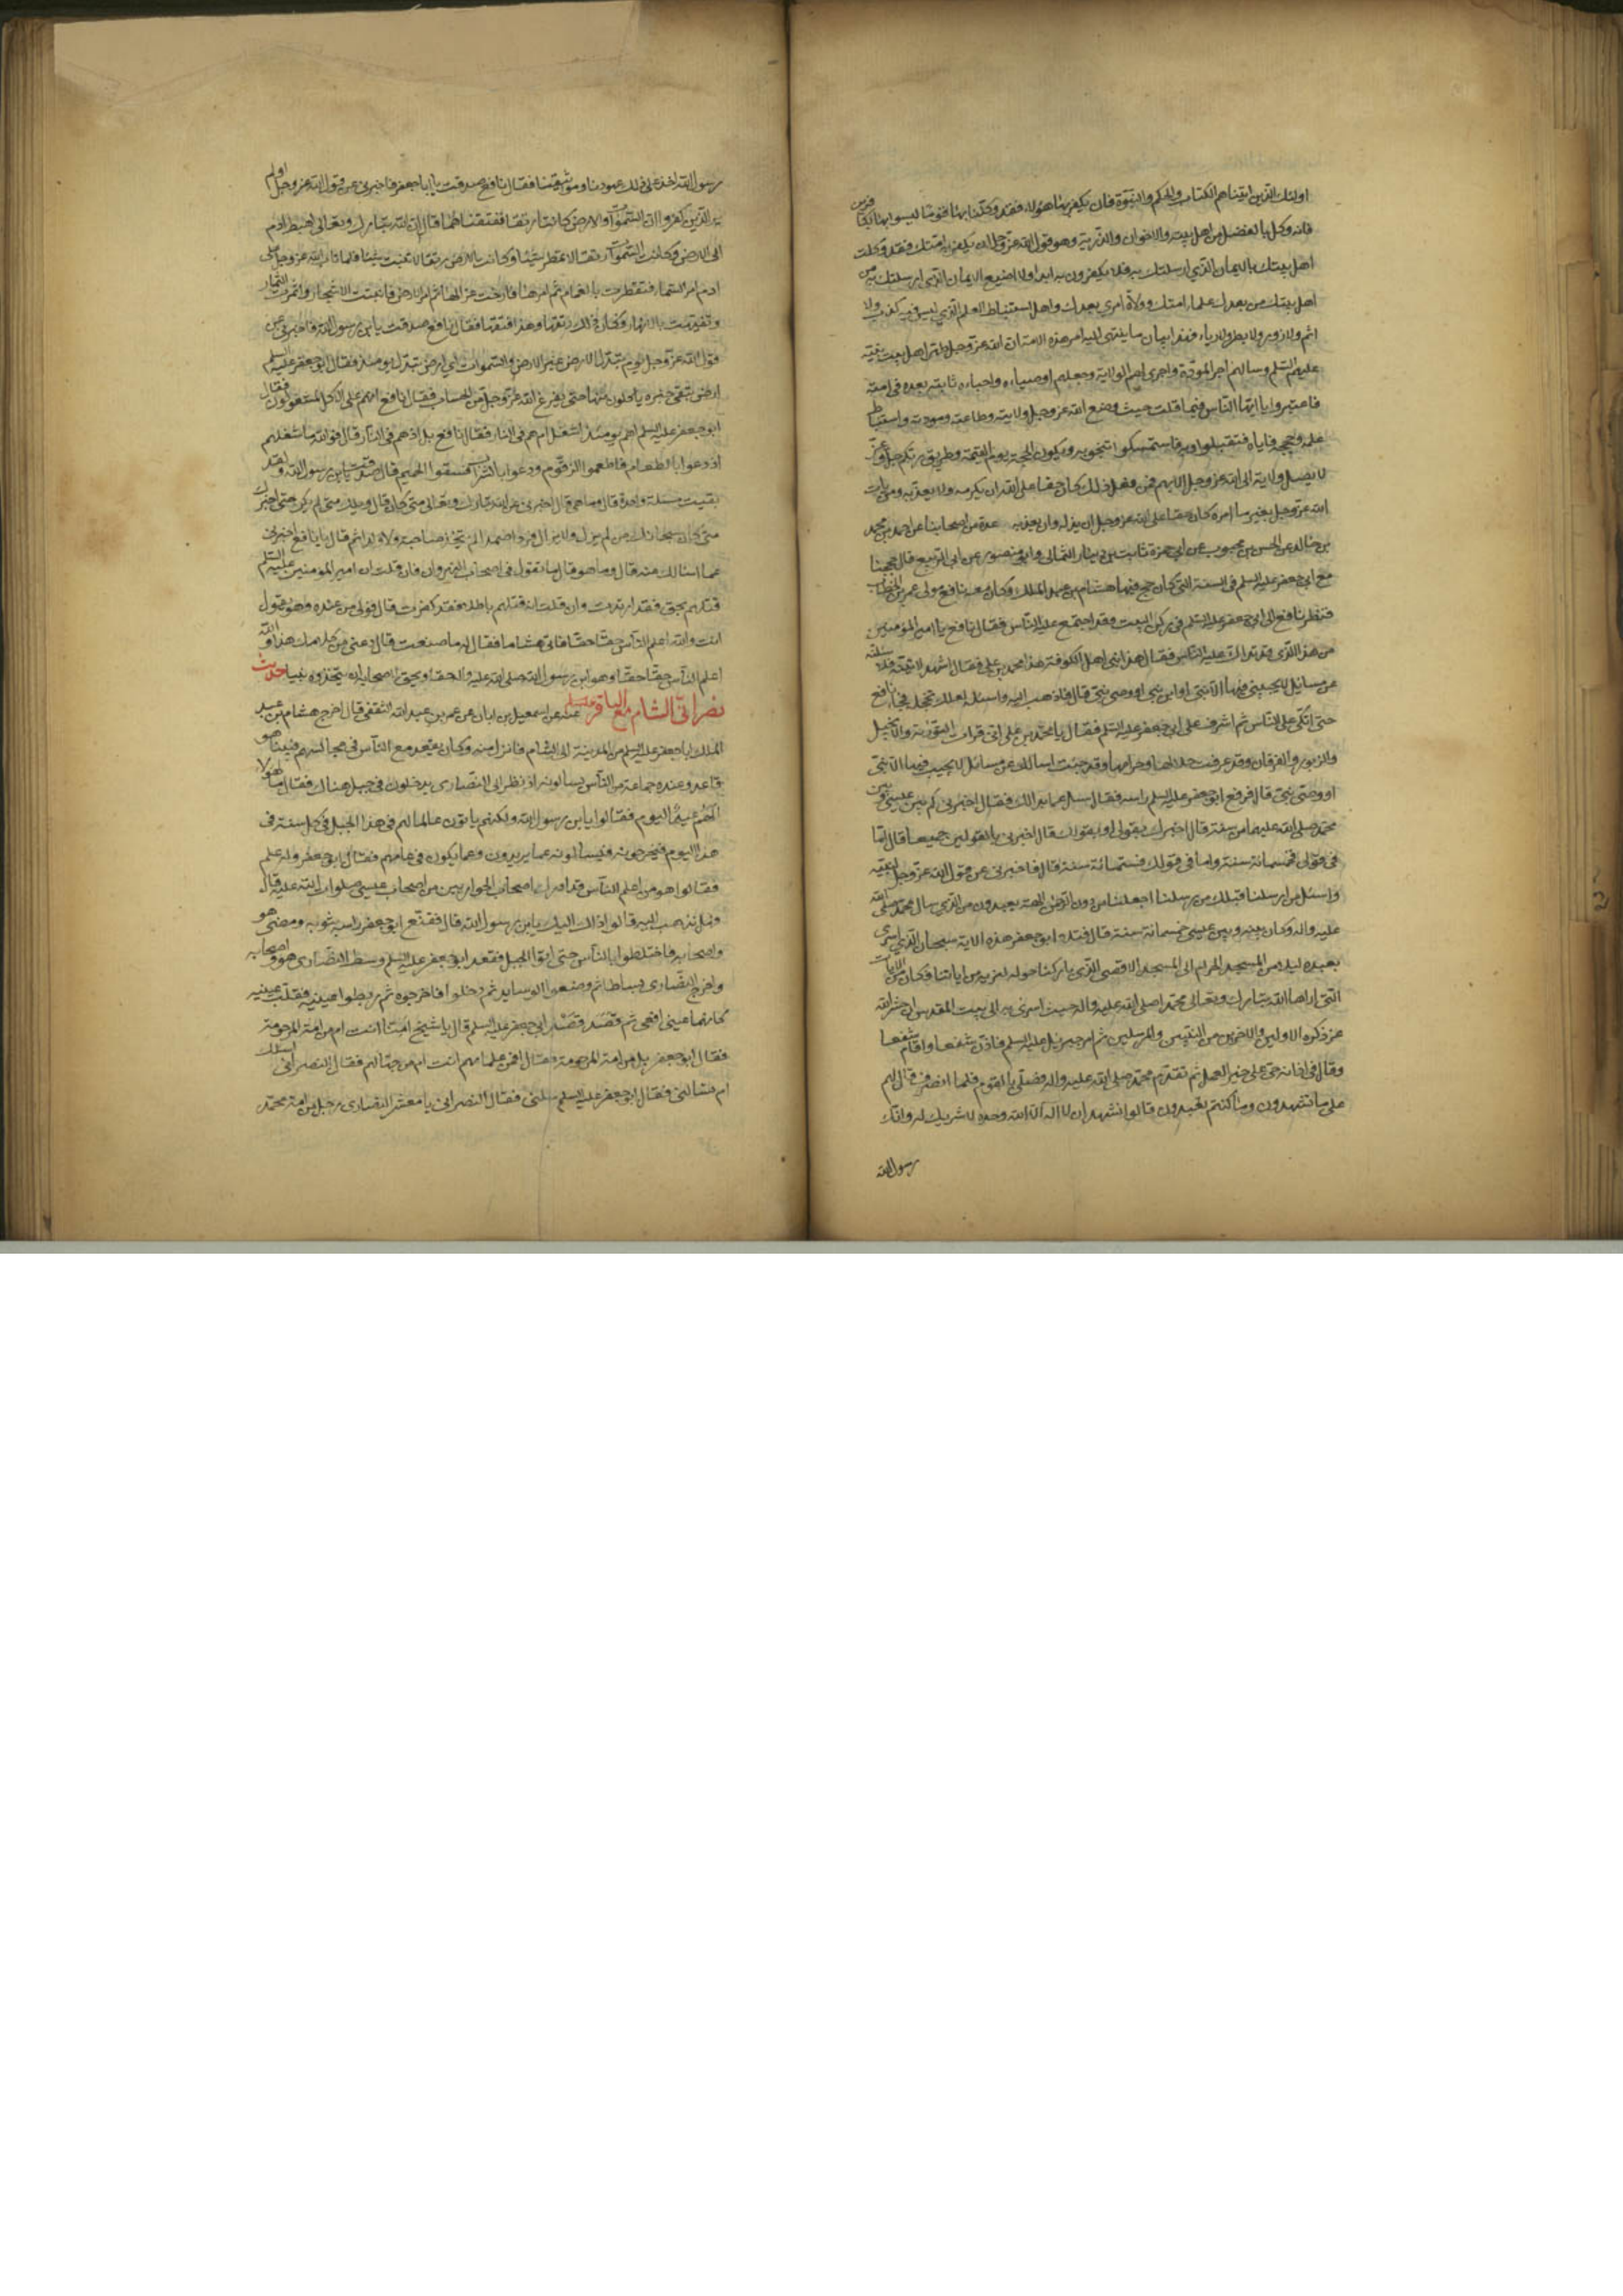 اولئك الذين اتيناهم الكتاب والحكم والنبوة فان يكفر بها هؤلاء فقد وكلنا بها قوما ليسوا بها بكافرين
فانه وكل بالفضل من اهل بيته والاخوان والذرية وهو قول الله عز وجل ان يكفر به امتك فقد وكلت
اهل بيتك بالايمان الذي ارسلتك به فلا يكفرون به ابدا ولا اضيع الايمان الذي ارسلتك به من
اهل بيتك من بعدك علماء امتك وولاة امري بعدك واهل استنباط العلم الذي ليس فيه كذب ولا
اثم ولا زور ولا بطر ولا رياء فهذا بيان ما ينتهي اليه امر هذه الامة ان الله عز وجل طهر اهل بيت نبيه
عليهم السلم وسالهم اجر المودة واجرى لهم الولاية وجعلهم اوصياءه واحباءه ثابتة بعده في امته
فاعتبروا يا ايها الناس فيما قلت حيث وضع الله عز وجل ولايته وطاعته ومودته واستنباط
علمه وحججه فاياه فتقبلوا وبه فاستمسكوا تنجوا به ويكون الحجة يوم القيمة وطريق ربكم جل وعز
لا يصل ولاية الى الله عز وجل الا بهم فمن فعل ذلك كان حقا على الله ان يكرمه ولا يعذبه ومن يات
الله عز وجل بغير ما امره كان حقا على الله عز وجل ان يذله وان يعذبه عدة من اصحابنا عن احمد بن محمد
بن خالد عن الحسن بن محبوب عن ابي حمزة ثابت بن دينار الثمالي وابي منصور عن ابي الربيع قال حججنا
مع ابي جعفر عليه السلم في السنة التي كان حج فيها هشام بن عبد الملك وكان معه نافع مولى عمر بن الخطاب
فنظر نافع الى ابي جعفر عليه السلم في ركن البيت وقد اجتمع عليه الناس فقال نافع يا امير المؤمنين
من هذا الذي قد تداك عليه الناس فقال هذا نبي اهل الكوفة هذا محمد بن علي فقال اشهد لاتينه فلاسئلنه
عن مسائل لا يجيبني فيها الا نبي او ابن نبي او وصي نبي قال فاذهب اليه واسئله لعلك تخجله فجاء نافع
حتى اتكى على الناس ثم اشرف على ابي جعفر عليه السلم فقال يا محمد بن علي اني قرات التورية والانجيل
والزبور والفرقان وقد عرفت حلالها وحرامها وقد جئت اسالك عن مسائل لا يجيب فيها الا نبي
او وصي نبي قال فرفع ابو جعفر عليه السلم راسه فقال سل عما بدا لك فقال اخبرني كم بين عيسى وبين
محمد صلى الله عليهما من سنة قال اخبرك بقولي او بقولك قال اخبرني بالقولين جميعا قال اما
في قولي فخمسمائة سنة واما في قولك فستمائة سنة قال فاخبرني عن قول الله عز وجل لنبيه
واسئل من ارسلنا قبلك من رسلنا اجعلنا من دون الرحمن الهة يعبدون من الذي سال محمد صلى الله
عليه واله وكان بينه وبين عيسى خمسمائة سنة قال فتلا ابو جعفر هذه الاية سبحان الذي اسرى
بعبده ليلا من المسجد الحرام الى المسجد الاقصى الذي باركنا حوله لنريه من اياتنا فكان من الايات
التي اراها الله تبارك وتعالى محمدا صلى الله عليه واله حيث اسرى به الى بيت المقدس ان حشر الله
عز ذكره الاولين والاخرين من النبيين والمرسلين ثم امر جبرئيل عليه السلم فاذن شفعا واقام شفعا
وقال في اذانه حي على خير العمل ثم تقدم محمد صلى الله عليه واله فصلى بالقوم فلما انصرف قال لهم
على ما تشهدون وما كنتم تعبدون قالوا نشهد ان لا اله الا الله وحده لا شريك له وانك
رسول الله
رسول الله اخذ على ذلك عهودنا ومواثيقنا فقال نافع صدقت يا ابا جعفر فاخبرني عن قول الله عز وجل اولم
ير الذين كفروا ان السموات والارض كانتا رتقا ففتقناهما قال ان الله تبارك وتعالى اهبط ادم
الى الارض وكانت السموات رتقا لا تمطر شيئا وكانت الارض رتقا لا تنبت شيئا فلما تاب الله عز وجل على
ادم امر السماء فتقطرت بالغمام ثم امرها فارخت عزاليها ثم امر الارض فانبتت الاشجار واثمرت الثمار
وتفيهقت بالانهار وكان ذلك رتقها وهذا فتقها فقال نافع صدقت يابن رسول الله فاخبرني عن
قول الله عز وجل يوم تبدل الارض غير الارض والسموات اي ارض تبدل يومئذ فقال ابو جعفر عليه السلم
ارض تبقى خبزة ياكلون منها حتى يفرغ الله عز وجل من الحساب فقال نافع انهم عن الاكل لمشغولون فقال
ابو جعفر عليه السلم اهم يومئذ اشغل ام هم في النار فقال نافع بل اذ هم في النار قال فوالله ما شغلهم
اذ دعوا بالطعام فاطعموا الزقوم ودعوا بالشراب فسقوا الحميم قال صدقت يابن رسول الله ولقد
بقيت مسئلة واحدة قال وما هي قال اخبرني عن الله تبارك وتعالى متى كان قال ويلك متى لم يكن حتى اخبرك
متى كان سبحان من لم يزل ولا يزال فردا صمدا لم يتخذ صاحبة ولا ولدا ثم قال يا نافع اخبرني
عما اسالك عنه قال وما هو قال ما تقول في اصحاب النهروان فان قلت ان امير المؤمنين عليه السلم
قتلهم بحق فقد ارتددت وان قلت انه قتلهم باطلا فقد كفرت قال فولى من عنده وهو يقول
انت والله اعلم الناس حقا حقا فاتى هشاما فقال له ما صنعت قال دعني من كلامك هذا والله
اعلم الناس حقا حقا وهو ابن رسول الله صلى الله عليه واله حقا ويحق لاصحابه ان يتخذوه نبيا حديث
نصراني الشام مع الباقر عليه السلم عنه عن اسمعيل بن ابان عن عمر بن عبد الله الثقفي قال اخرج هشام بن عبد
الملك ابا جعفر عليه السلم من المدينة الى الشام فانزله منه وكان يقعد مع الناس في مجالسهم فبينا هو
قاعد وعنده جماعة من الناس يسالونه اذ نظر الى النصارى يدخلون في جبل هناك فقال ما لهؤلاء
الهم عيد اليوم فقالوا لا يابن رسول الله ولكنهم ياتون عالما لهم في هذا الجبل في كل سنة في
هذا اليوم فيخرجونه فيسالونه عما يريدون وعما يكون في عامهم فقال ابو جعفر وله علم
فقالوا هو من اعلم الناس قد ادرك اصحاب الحواريين من اصحاب عيسى صلوات الله عليه قال
فهل نذهب اليه قالوا ذاك اليك يابن رسول الله قال فقنع ابو جعفر راسه بثوبه ومضى هو
واصحابه فاختلطوا بالناس حتى اتوا الجبل فقعد ابو جعفر عليه السلم وسط النصارى هو واصحابه
واخرج النصارى بساطا ثم وضعوا الوسايد ثم دخلوا فاخرجوه ثم ربطوا عينيه فقلب عينيه
كانهما عينا افعى ثم قصد قصد ابي جعفر عليه السلم قال يا شيخ امنا انت ام من الامة المرحومة
فقال ابو جعفر بل من امة المرحومة فقال افمن علمائهم انت ام من جهالهم فقال النصراني اسئلك
ام تسالني فقال ابو جعفر عليه السلم سلني فقال النصراني يا معشر النصارى رجل من امة محمد